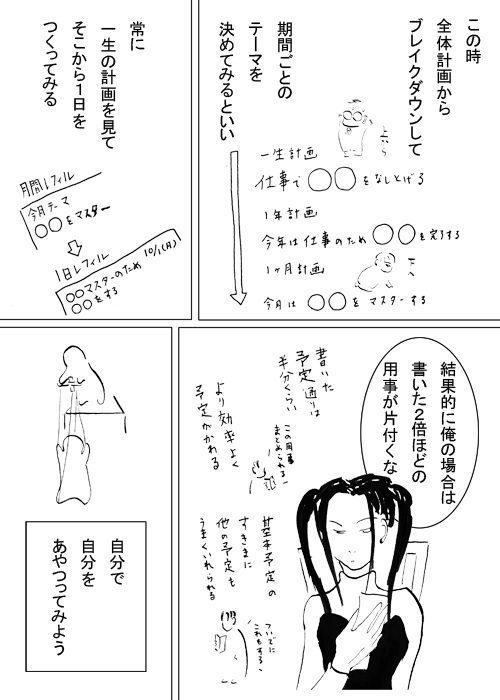 この時
全体計画から
ブレイクダウンして
期間ごとの
テーマを
決めてみるといい
上から
一生計画
仕事で〇〇をなしとげる
1年計画
今年は仕事のため〇〇を完了する
1ヶ月計画
下へ
今月は〇〇をマスターする
常に
一生の計画を見て
そこから1日を
つくってみる
月間レフィル
今月テーマ
〇〇をマスター
1日レフィル
10/1(月)
〇〇マスターのため
〇〇をする
結果的に俺の場合は
書いた2倍ほどの
用事が片付くな
書いた
予定通りは
半分くらい
この用事
まとめられる!
より効率よく
予定がかわる
基本予定の
すきまに
他の予定も
うまくいれられる
ついでに
これもする!
自分で
自分を
あやつってみよう